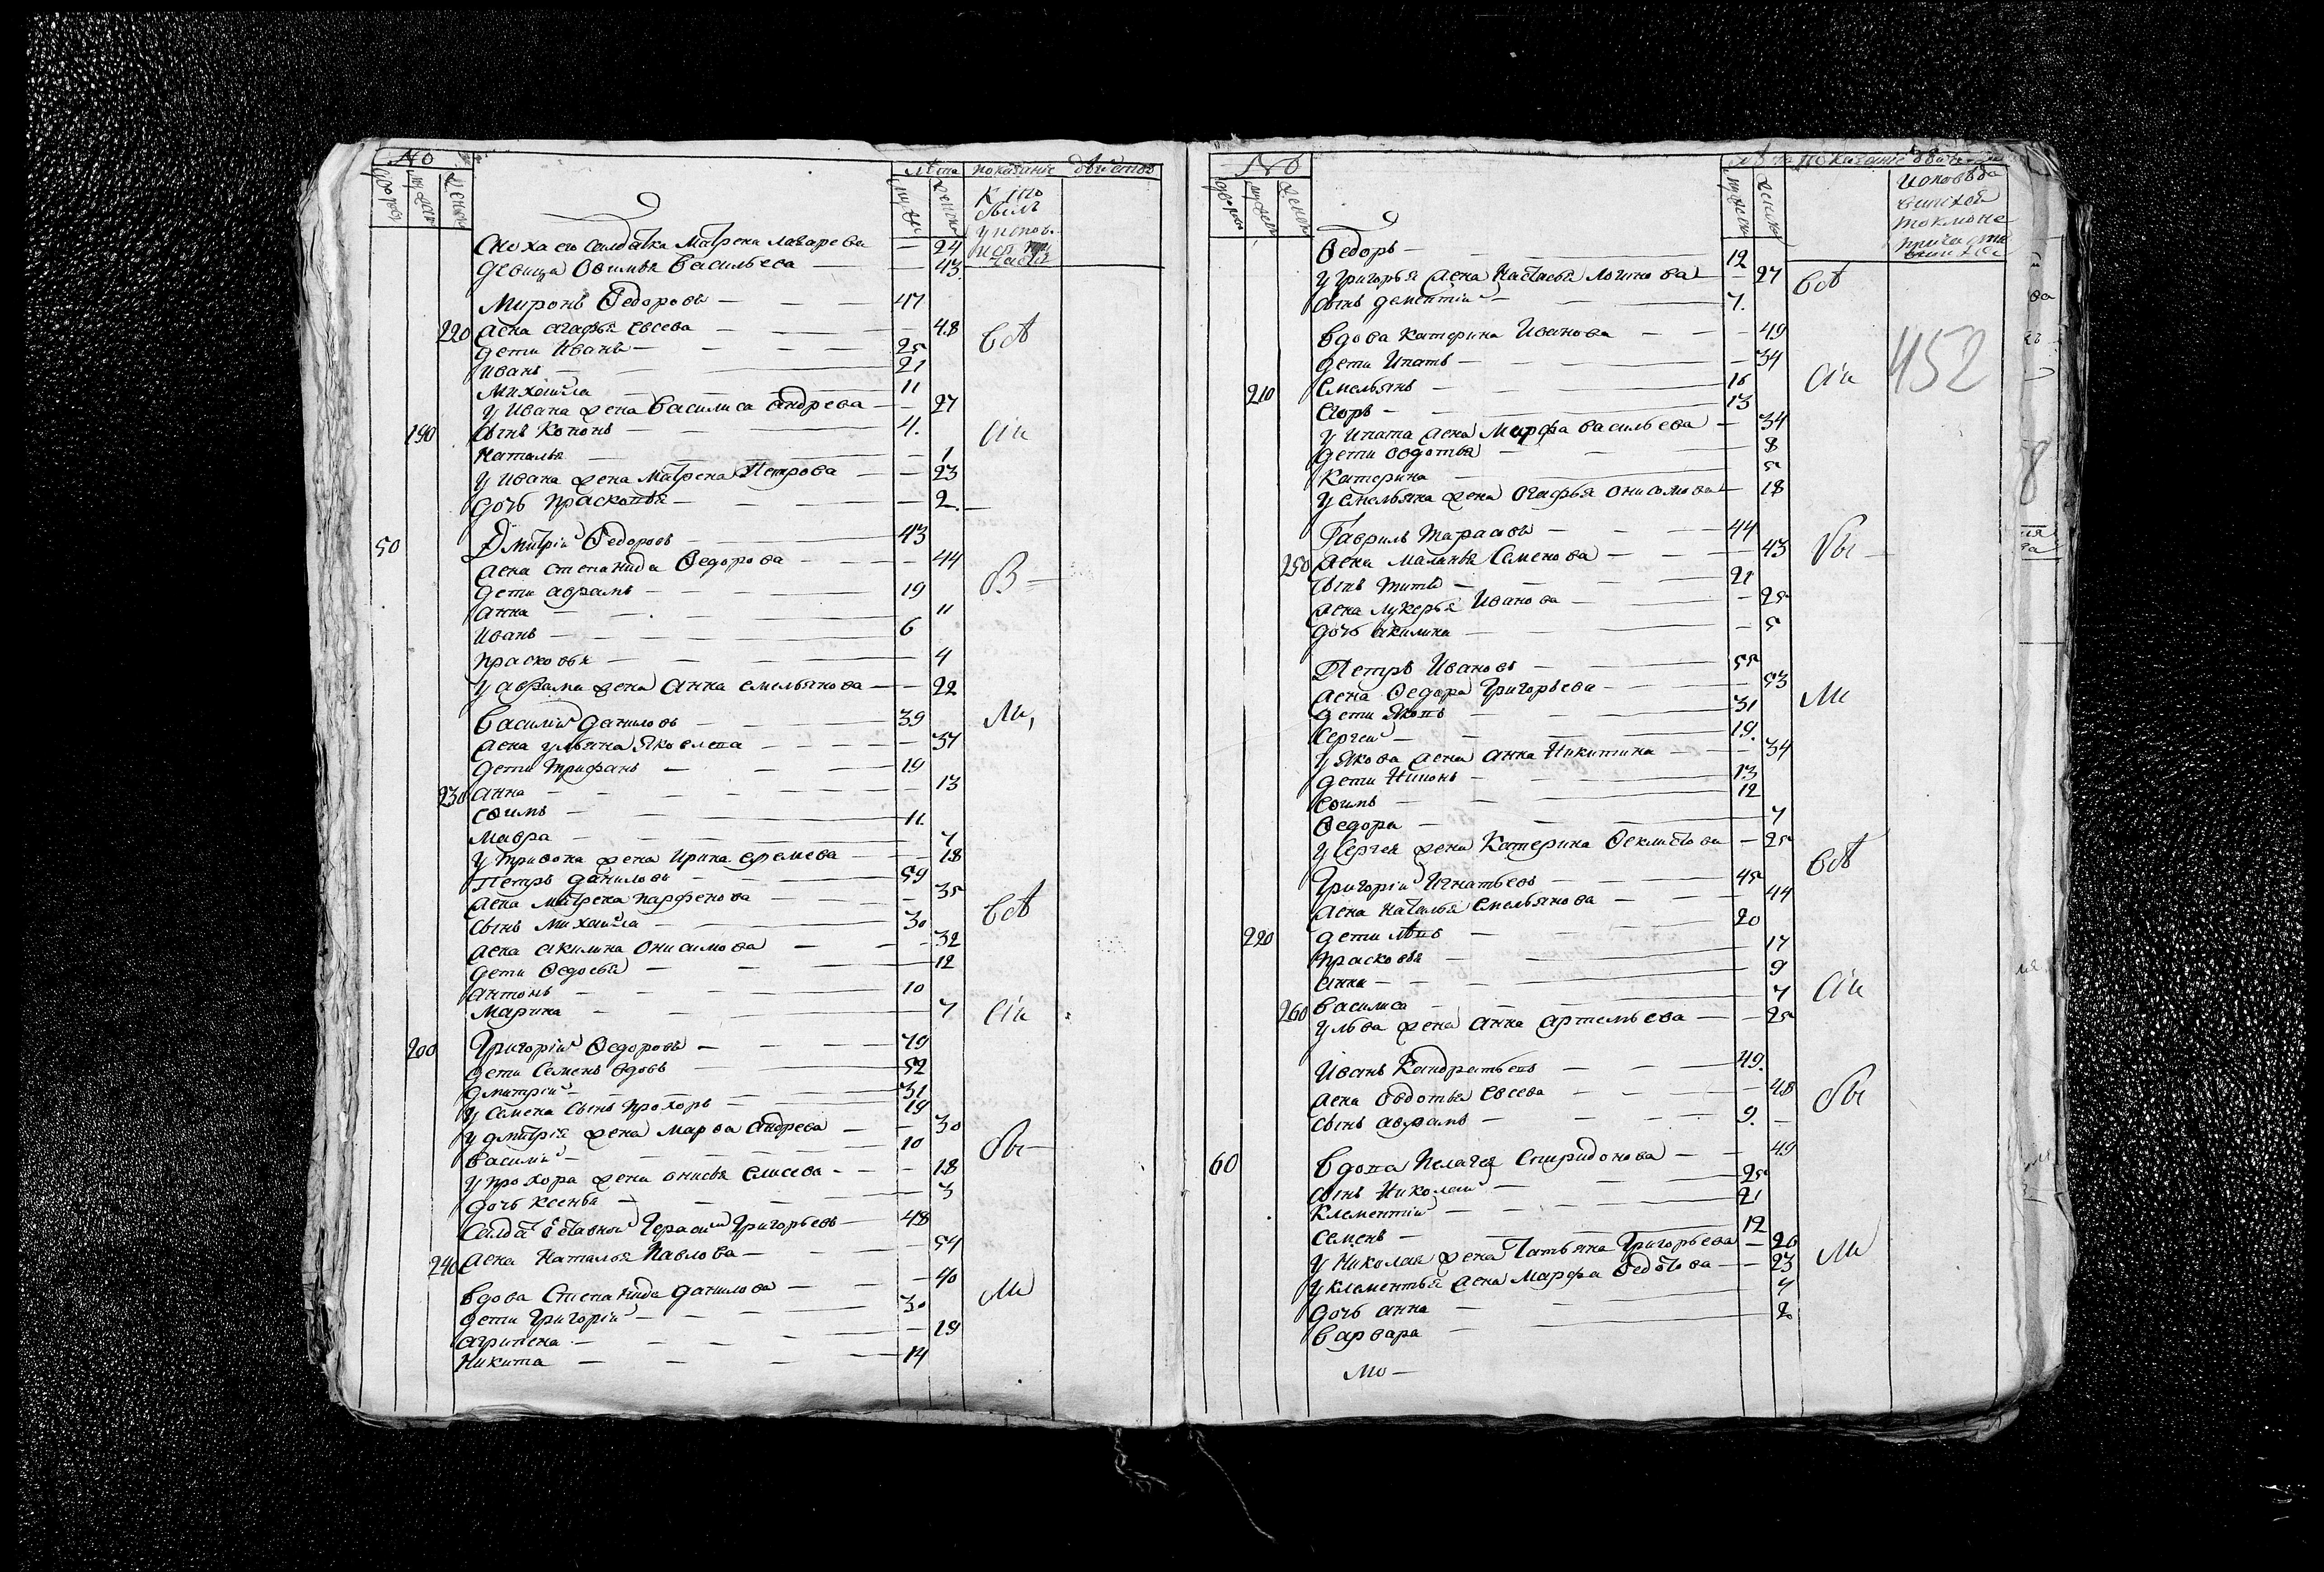 No
Лѣта показание действъ
дворовъ мужеск женск
мужск женск
Кто былъ у испов. и св. причастия
Сноха его салдатка Матрена Лазарева — 24
Девица Овимья Васильева — 43
Миронъ Ѳедоровъ — 47
220 жена Агафья Евсева — 48
дети Иванъ — 25
Иванъ — 21
Михайла — 11
у Ивана жена Василиса Андрева — 27
190 сынъ Кононъ — 4.
Наталья — 1
у Ивана жена Матрена Петрова — 23
дочь Прасковья — 2.
50 Дмитрій Ѳедоровъ — 43
жена Степанида Ѳедорова — 44
дети Аврамъ — 19
Анна — 11
Иванъ — 6
Прасковья — 4
у Аврама жена Анна Емельянова — 22
Василий Даниловъ — 39
жена Ульяна Яковлева — 37
дети Трифанъ — 19
230 Анна — 13
Еѳимъ — 11.
Мавра — 7
у Триѳона жена Ирина Еремева — 18
Петръ Даниловъ — 59
жена Матрена Парфенова — 35
сынъ Михайла — 30
жена Акилина Онисимова — 32
дети Ѳедосья — 12
Антонъ — 10
Марина — 7
200 Григорій Ѳедоровъ — 79
дети Семенъ вдовъ — 52
Дмитрий — 31
у Семена сынъ Прохоръ — 19
у Дмитрія жена Марѳа Андрева — 30
Василий — 10
у Прохора жена Онисья Елисева — 18
дочь Ксенья — 3
Салдатъ отставной Герасимъ Григорьевъ — 48
240 жена Наталья Павлова — 54
вдова Степанида Данилова — 40
дети Григорій — 30
Агрипена — 19
Никита — 14
всѣ
сіи
бы —
ли,
всѣ
сіи
бы —
ли
No
Лѣта показание действъ
дворовъ мужеск женск
мужеск женск
Исповѣдавшихся токмо не причастившихся
452
Ѳедоръ — 12
у Григорья жена Настасья Логинова — 27
сынъ Дементій — 7.
вдова Катерина Иванова — 49
дети Ипатъ — 34
210 Емельянъ — 16
Егоръ — 13
у Ипата жена Марфа Васильева — 34
дети Овдотья — 8
Катерина — 5
у Емельяна жена Огафья Онисимова — 18
Гаврилъ Тарасовъ — 44
250 жена Маланья Семенова — 43
сынъ Титъ — 21
жена Лукерья Иванова — 25
дочь Акилина — 5
Петръ Ивановъ — 55
жена Ѳедора Григорьева — 53
дети Яковъ — 31
Сергей — 19.
у Якова жена Анна Никитина — 34
дети Никонъ — 13
Еѳимъ — 12
Ѳедора — 7
у Сергея жена Катерина Ѳеклистова — 25
Григорій Игнатьевъ — 45
жена Наталья Емельянова — 44
220 дети Лѣвъ — 20
Прасковья — 17
Анна — 9
260 Василиса — 7
у Льва жена Анна Артемьева — 25
Иванъ Кандратьевъ — 49.
жена Овдотья Евсева — 48
сынъ Аврамъ — 9. —
60 вдова Пелагея Спиридонова — 49
сынъ Николай — 25
Клементій — 21
Семенъ — 12
у Николая жена Татьяна Григорьева — 26
у Клементья жена Марфа Ѳедотова — 23
дочь Анна — 4
Варвара — 2
всѣ
сіи
бы —
ли
всѣ
сіи
бы
ли